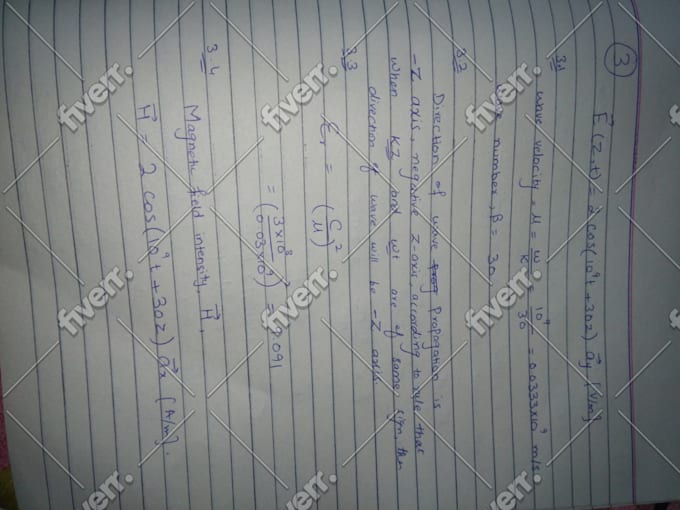 3
E⃗(z,t) = 2 cos(10⁹t + 30z) a⃗y [V/m]
3.1 wave velocity, μ = ω/k = 10⁹/30 = 0.0333x10⁹ m/s
number, β = 30
3.2 Direction of wave propagation is
-Z axis, negative z-axis, according to rule that
when kz and wt are of same sign, then
direction of wave will be -Z axis.
3.3 εr = (c/μ)²
= (3x10⁸/0.03x10⁹)² = .091
3.4 Magnetic field intensity, H⃗,
H⃗ = 2 cos(10⁹t + 30z) a⃗x [A/m].
fiverr.
fiverr.
fiverr.
fiverr.
fiverr.
fiverr.
fiverr.
fiverr.
fiverr.
fiverr.
fiverr.
fiverr.